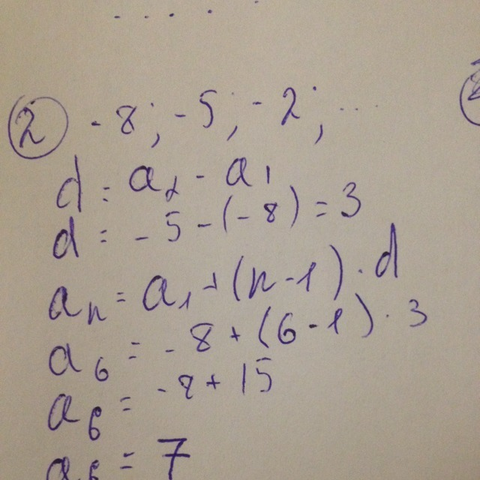 ② -8; -5; -2; ...
d = a₂ - a₁
d = -5 - (-8) = 3
aₙ = a₁ + (n-1) · d
a₆ = -8 + (6-1) · 3
a₆ = -8 + 15
a₆ = 7